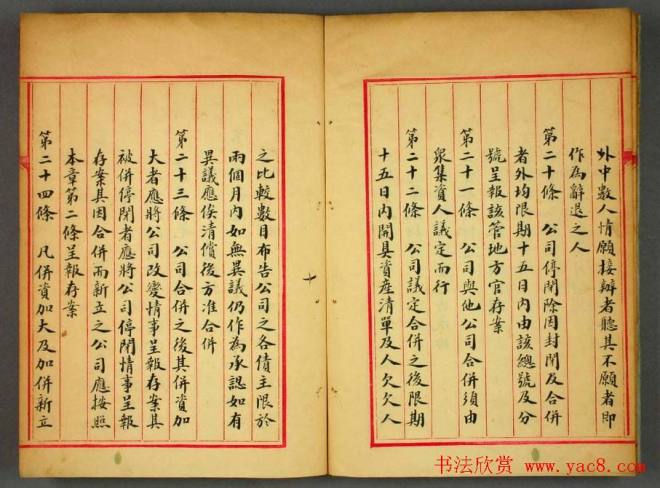 外中數人情願接辦者聽其不願者即
作為辭退之人
第二十條　公司停閉除因封閉及合併
者外均限期十五日內由該總號及分
號呈報該管地方官存案
第二十一條　公司與他公司合併須由
眾集資人議定而行
第二十二條　公司議定合併之後限期
十五日內開具資產清單及人欠欠人
之比較數目布告公司之各債主限於
兩個月內如無異議仍作為承認如有
異議應俟清償後方准合併
第二十三條　公司合併之後其併資加
大者應將公司改變情事呈報存案其
被併停閉者應將公司停閉情事呈報
存案其因合併而新立之公司應按照
本章第二條呈報存案
第二十四條　凡併資加大及加併新立
十
书法欣赏 www.yac8.com